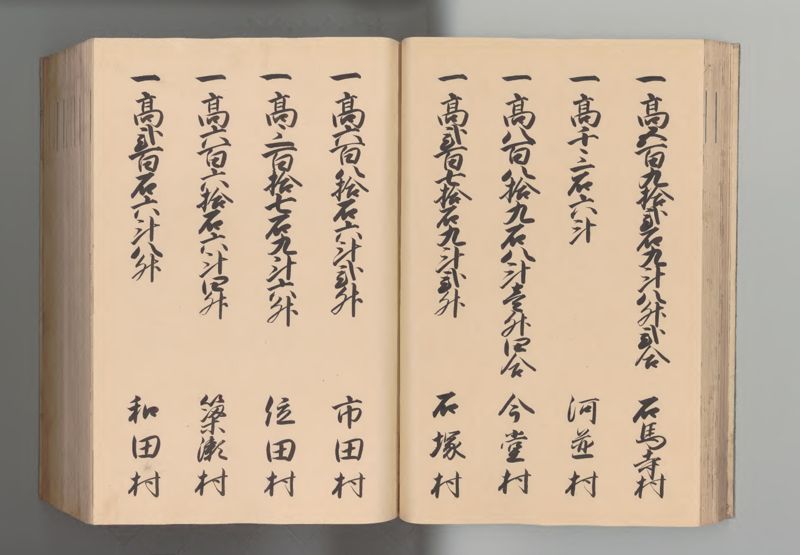 一高五百九拾弐石九斗八升弐合 石馬寺村
一高千三石六斗 河並村
一高八百八拾九石八斗壱升四合 今堂村
一高弐百七拾石九斗弐升 石塚村
一高六百八拾石六斗弐升 市田村
一高三百拾七石九斗六升 位田村
一高六百六拾石六斗四升 簗瀬村
一高弐百石六斗八升 和田村